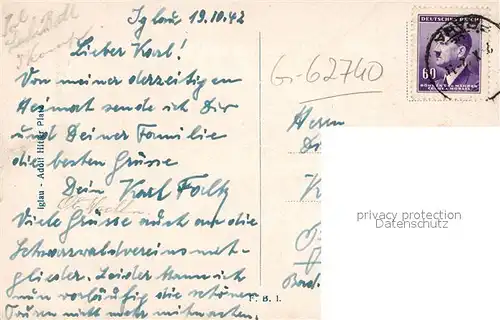 Iglau 19.10.42
Lieber Karl!
Von meiner derzeitigen
Heimat sende ich Dir
und Deiner Familie
die besten Grüsse
Dein Karl Faltz
Viele Grüsse auch an die
Schwarzwaldvereinsmit-
glieder. Leider kann ich
nun vorläufig die schönen
Touren nicht mehr mitmachen.
Iglau - Adolf Hitler Platz
Gi-62740
DEUTSCHES REICH
60
BÖHMEN UND MÄHREN
Herrn
privacy protection
Datenschutz
F. B. I.